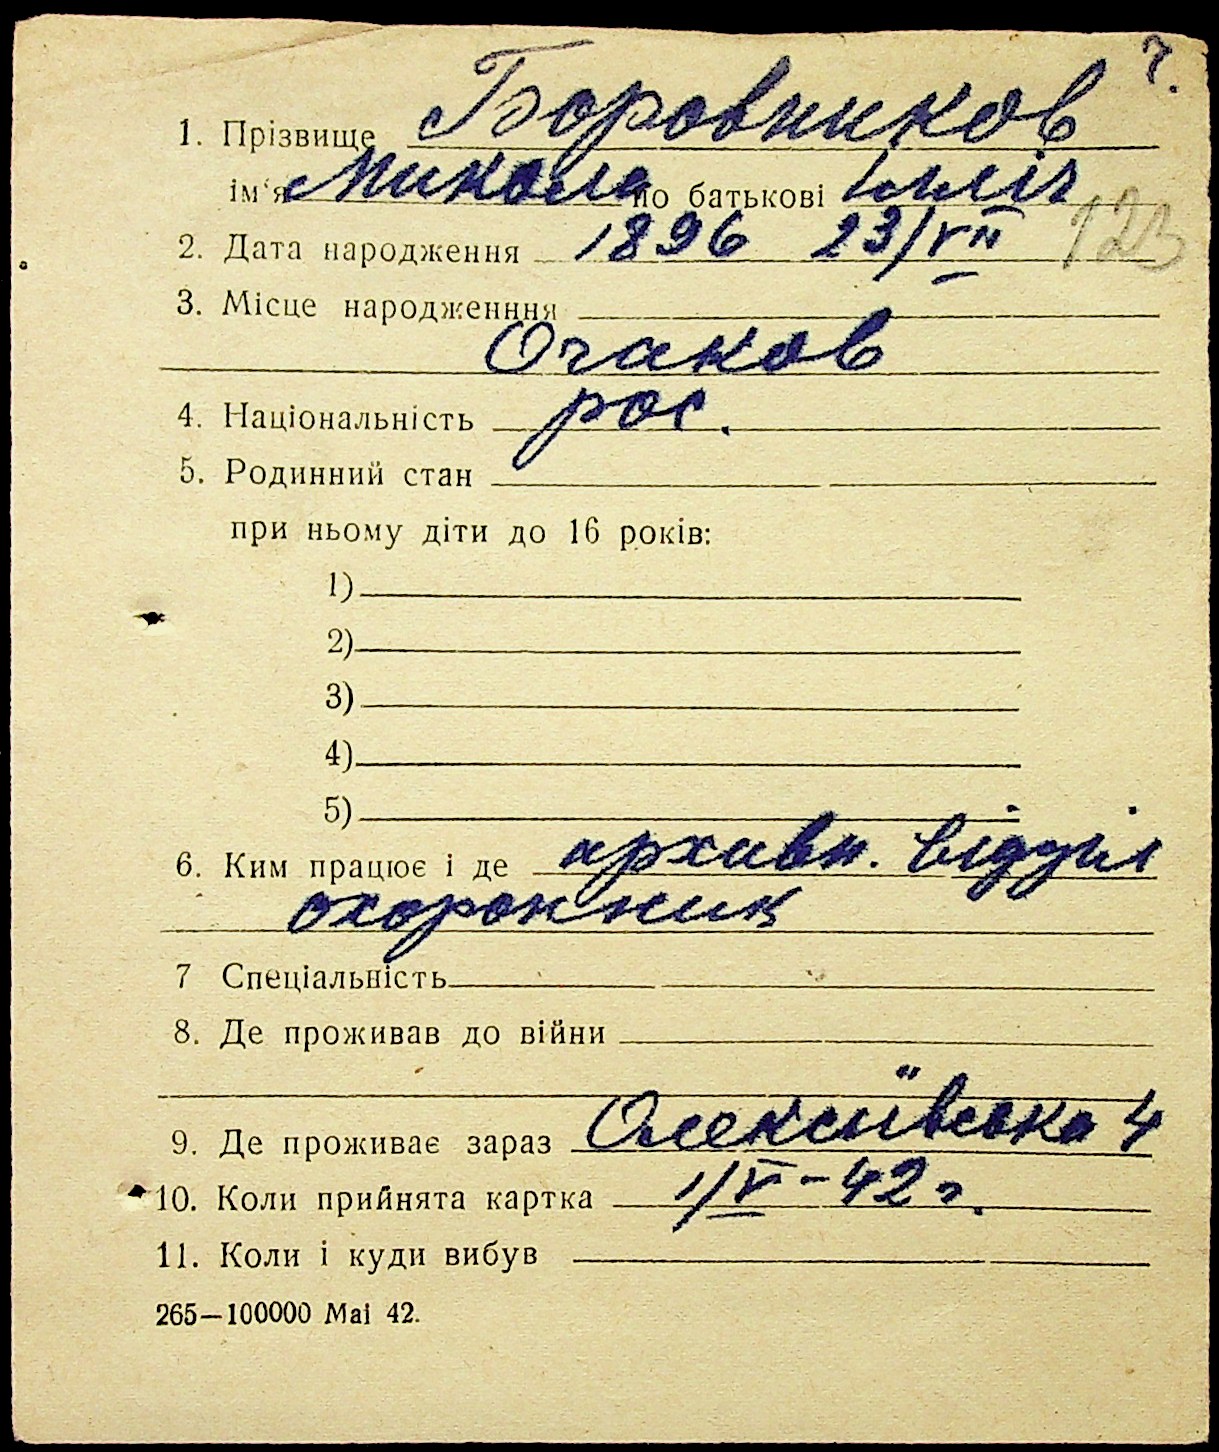 7.
1. Прізвище Боровников
ім'я Микола по батькові Ілліч
2. Дата народження 1896 23/VII 123
3. Місце народженння
Очаков
4. Національність рос.
5. Родинний стан
при ньому діти до 16 років:
1)
2)
3)
4)
5)
6. Ким працює і де архивн. відділ
охоронник
7 Спеціальність
8. Де проживав до війни
9. Де проживає зараз Олексіївська 4
10. Коли прийнята картка 1/V-42 г.
11. Коли і куди вибув
265—100000 Mai 42.